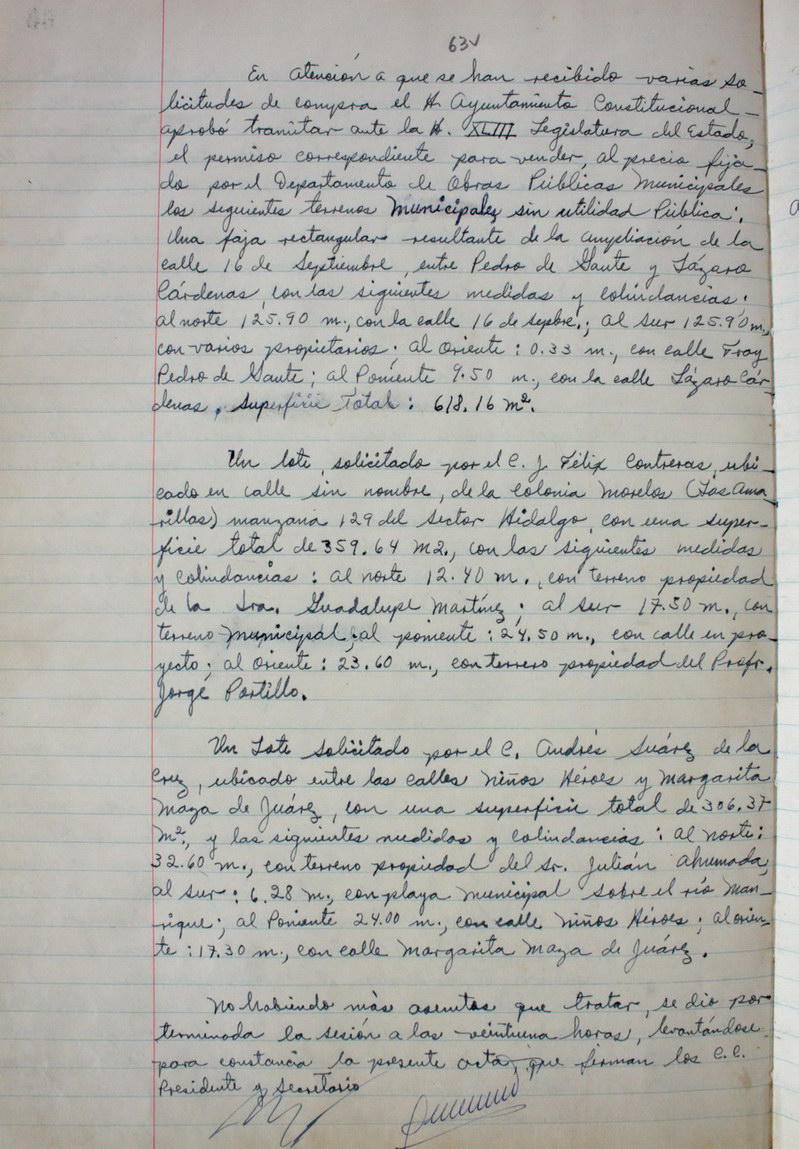 63v
En atención a que se han recibido varias so-
licitudes de compra el H. Ayuntamiento Constitucional-
aprobó tramitar ante la H. XLIII Legislatura del Estado,
el permiso correspondiente para vender, al precio fija-
do por el Departamento de Obras Públicas Municipales
los siguientes terrenos Municipales sin utilidad Pública:.
Una faja rectangular resultante de la ampliación de la
calle 16 de Septiembre, entre Pedro de Gante y Lázaro
Cárdenas, con las siguientes medidas y colindancias:
al norte 125.90 m., con la calle 16 de sepbre.; al sur 125.90 m.,
con varios propietarios; al Oriente: 0.33 m., con calle Fray
Pedro de Gante; al Poniente 9.50 m., con la calle Lázaro Cár-
denas, superficie Total: 618.16 m².
Un lote, solicitado por el C. J. Félix Contreras, ubi-
cado en calle sin nombre, de la Colonia Morelos (Las Ama-
rillas) manzana 129 del sector Hidalgo, con una super-
ficie total de 359.64 M2., con las siguientes medidas
y colindancias: al norte 12.40 m., con terreno propiedad
de la Sra. Guadalupe Martínez; al sur 17.50 m., con
terreno municipal; al poniente: 24.50 m., con calle en pro-
yecto; al oriente: 23.60 m., con terreno propiedad del Profr.
Jorge Portillo.
Un Lote solicitado por el C. Andrés Suárez de la
Cruz, ubicado entre las calles Niños Héroes y Margarita
Maza de Juárez, con una superficie total de 306.37
M²., y las siguientes medidas y colindancias: al norte:
32.60 m., con terreno propiedad del Sr. Julián Ahumada,
al sur: 6.28 m., con playa municipal sobre el río Man-
rique; al Poniente 24.00 m., con calle Niños Héroes; al orien-
te: 17.30 m., con calle Margarita Maza de Juárez.
No habiendo más asuntos que tratar, se dio por
terminada la sesión a las veintiuna horas, levantándose
para constancia la presente acta, que firman los C.C.
Presidente y Secretario